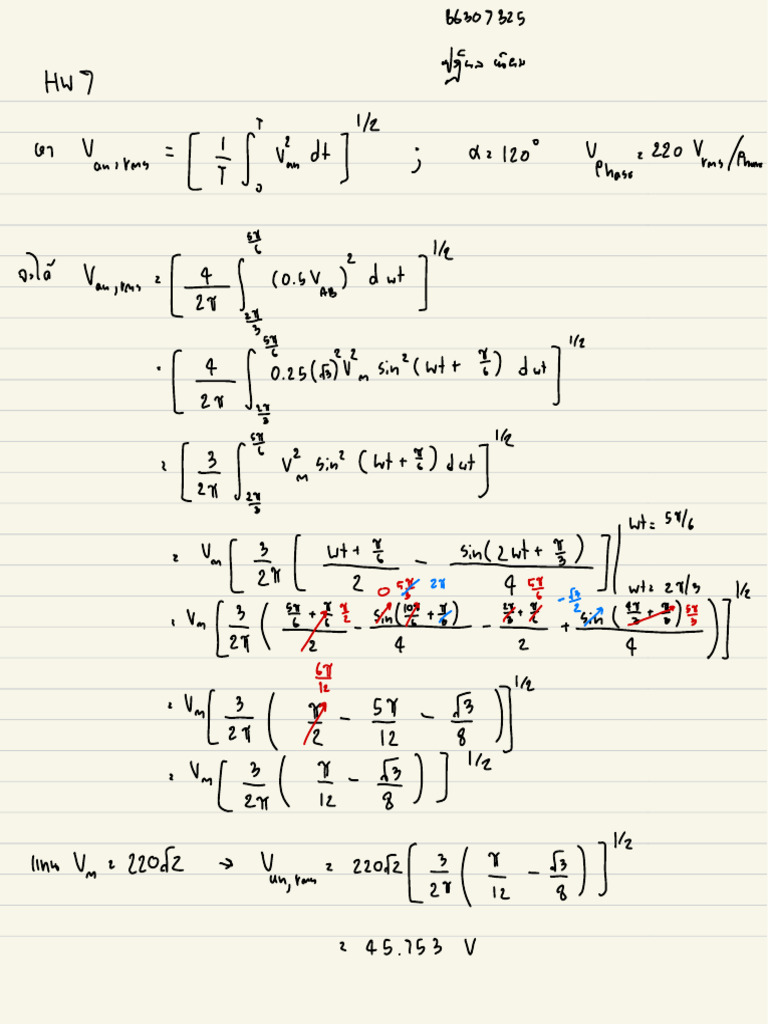 66307325
HW 7
หา V_{an,rms} = [ 1/T ∫_0^T V_{an}^2 dt ]^{1/2} ; α = 120° V_{Phase} = 220 V_{rms}/Phase
จะได้ V_{an,rms} = [ 4/2π ∫_{2π/3}^{5π/6} (0.5 V_{AB})^2 d wt ]^{1/2}
= [ 4/2π ∫_{2π/3}^{5π/6} 0.25 (√3)^2 V_M^2 sin^2 (wt + π/6) d wt ]^{1/2}
= [ 3/2π ∫_{2π/3}^{5π/6} V_M^2 sin^2 (wt + π/6) d wt ]^{1/2}
= V_m [ 3/2π [ (wt + π/6)/2 - sin(2wt + π/3)/4 ] ] | wt = 5π/6 wt = 2π/3
= V_M [ 3/2π ( (5π/6 + π/6)/2 - sin(10π/6 + π/3)/4 - (2π/3 + π/6)/2 + sin(4π/3 + π/3)/4 ) ]^{1/2}
π/2 0 5π/3 2π 5π/6 -√3/2 5π/3
6π/12
= V_M [ 3/2π ( π/2 - 5π/12 - √3/8 ) ]^{1/2}
= V_M [ 3/2π ( π/12 - √3/8 ) ]^{1/2}
แทน V_M = 220√2 → V_{an,rms} = 220√2 [ 3/2π ( π/12 - √3/8 ) ]^{1/2}
= 45.753 V